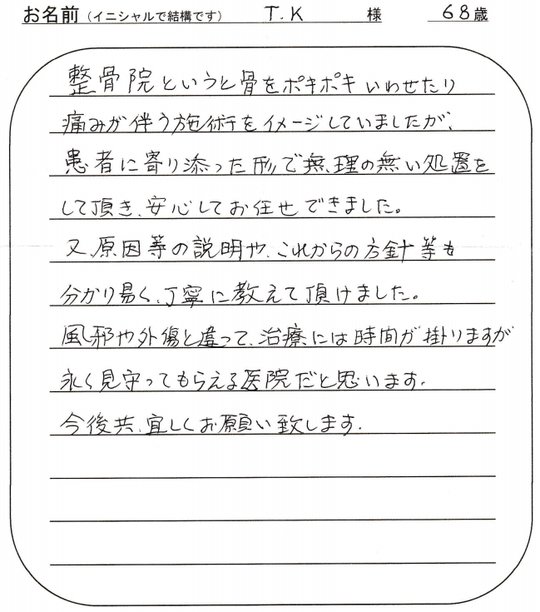 お名前（イニシャルで結構です） T.K 様 68歳
整骨院というと骨をポキポキいわせたり
痛みが伴う施術をイメージしていましたが、
患者に寄り添った形で無理の無い処置を
して頂き、安心してお任せできました。
又、原因等の説明や、これからの方針等も
分かり易く、丁寧に教えて頂けました。
風邪や外傷と違って、治療には時間が掛りますが
永く見守ってもらえる医院だと思います。
今後共、宜しくお願い致します。